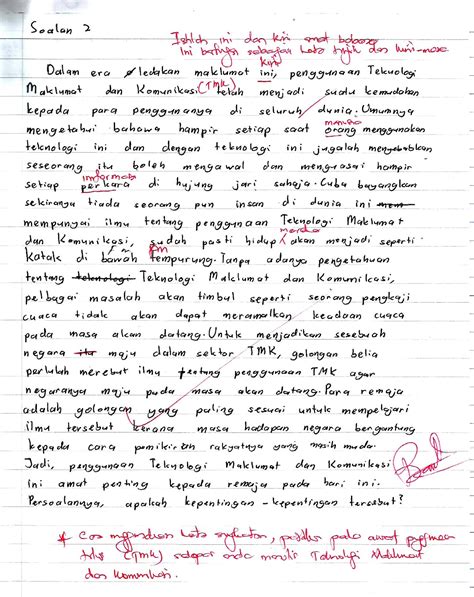 Soalan 2
Istilah ini dan kini amat berbeza
Ini berfungsi sebagai kata tunjuk dan kini - masa
kini
Dalam era ledakan maklumat ini, penggunaan Teknologi
Maklumat dan Komunikasi (TMK) telah menjadi suatu kemudahan
kepada para penggunanya di seluruh dunia. Umumnya
manusia
mengetahui bahawa hampir setiap saat orang menggunakan
teknologi ini dan dengan teknologi ini jugalah menyebabkan
seseorang itu boleh mengawal dan menguasai hampir
informasi
setiap perkara di hujung jari sahaja. Cuba bayangkan
sekiranya tiada seorang pun insan di dunia ini
mempunyai ilmu tentang penggunaan Teknologi Maklumat
mereka
dan Komunikasi, sudah pasti hidup akan menjadi seperti
katak di bawah tempurung. Tanpa adanya pengetahuan
tentang teknologi Teknologi Maklumat dan Komunikasi,
pelbagai masalah akan timbul seperti seorang pengkaji
cuaca tidak akan dapat meramalkan keadaan cuaca
pada masa akan datang. Untuk menjadikan sesebuah
negara itu maju dalam sektor TMK, golongan belia
perlulah merebut ilmu tentang penggunaan TMK agar
negaranya maju pada masa akan datang. Para remaja
adalah golongan yang paling sesuai untuk mempelajari
ilmu tersebut kerana masa hadapan negara bergantung
kepada cara pemikiran rakyatnya yang masih muda.
Jadi, penggunaan Teknologi Maklumat dan Komunikasi
ini amat penting kepada remaja pada hari ini.
Persoalannya, apakah kepentingan-kepentingan tersebut?
* kata singkatan, pada awal
(TMK) selepas anda menulis Teknologi Maklumat
dan Komunikasi.